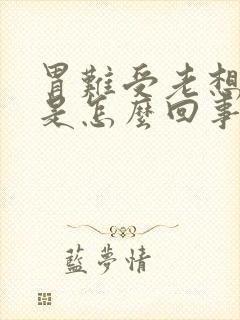 胃難受老想
是怎麼回事
藍夢情